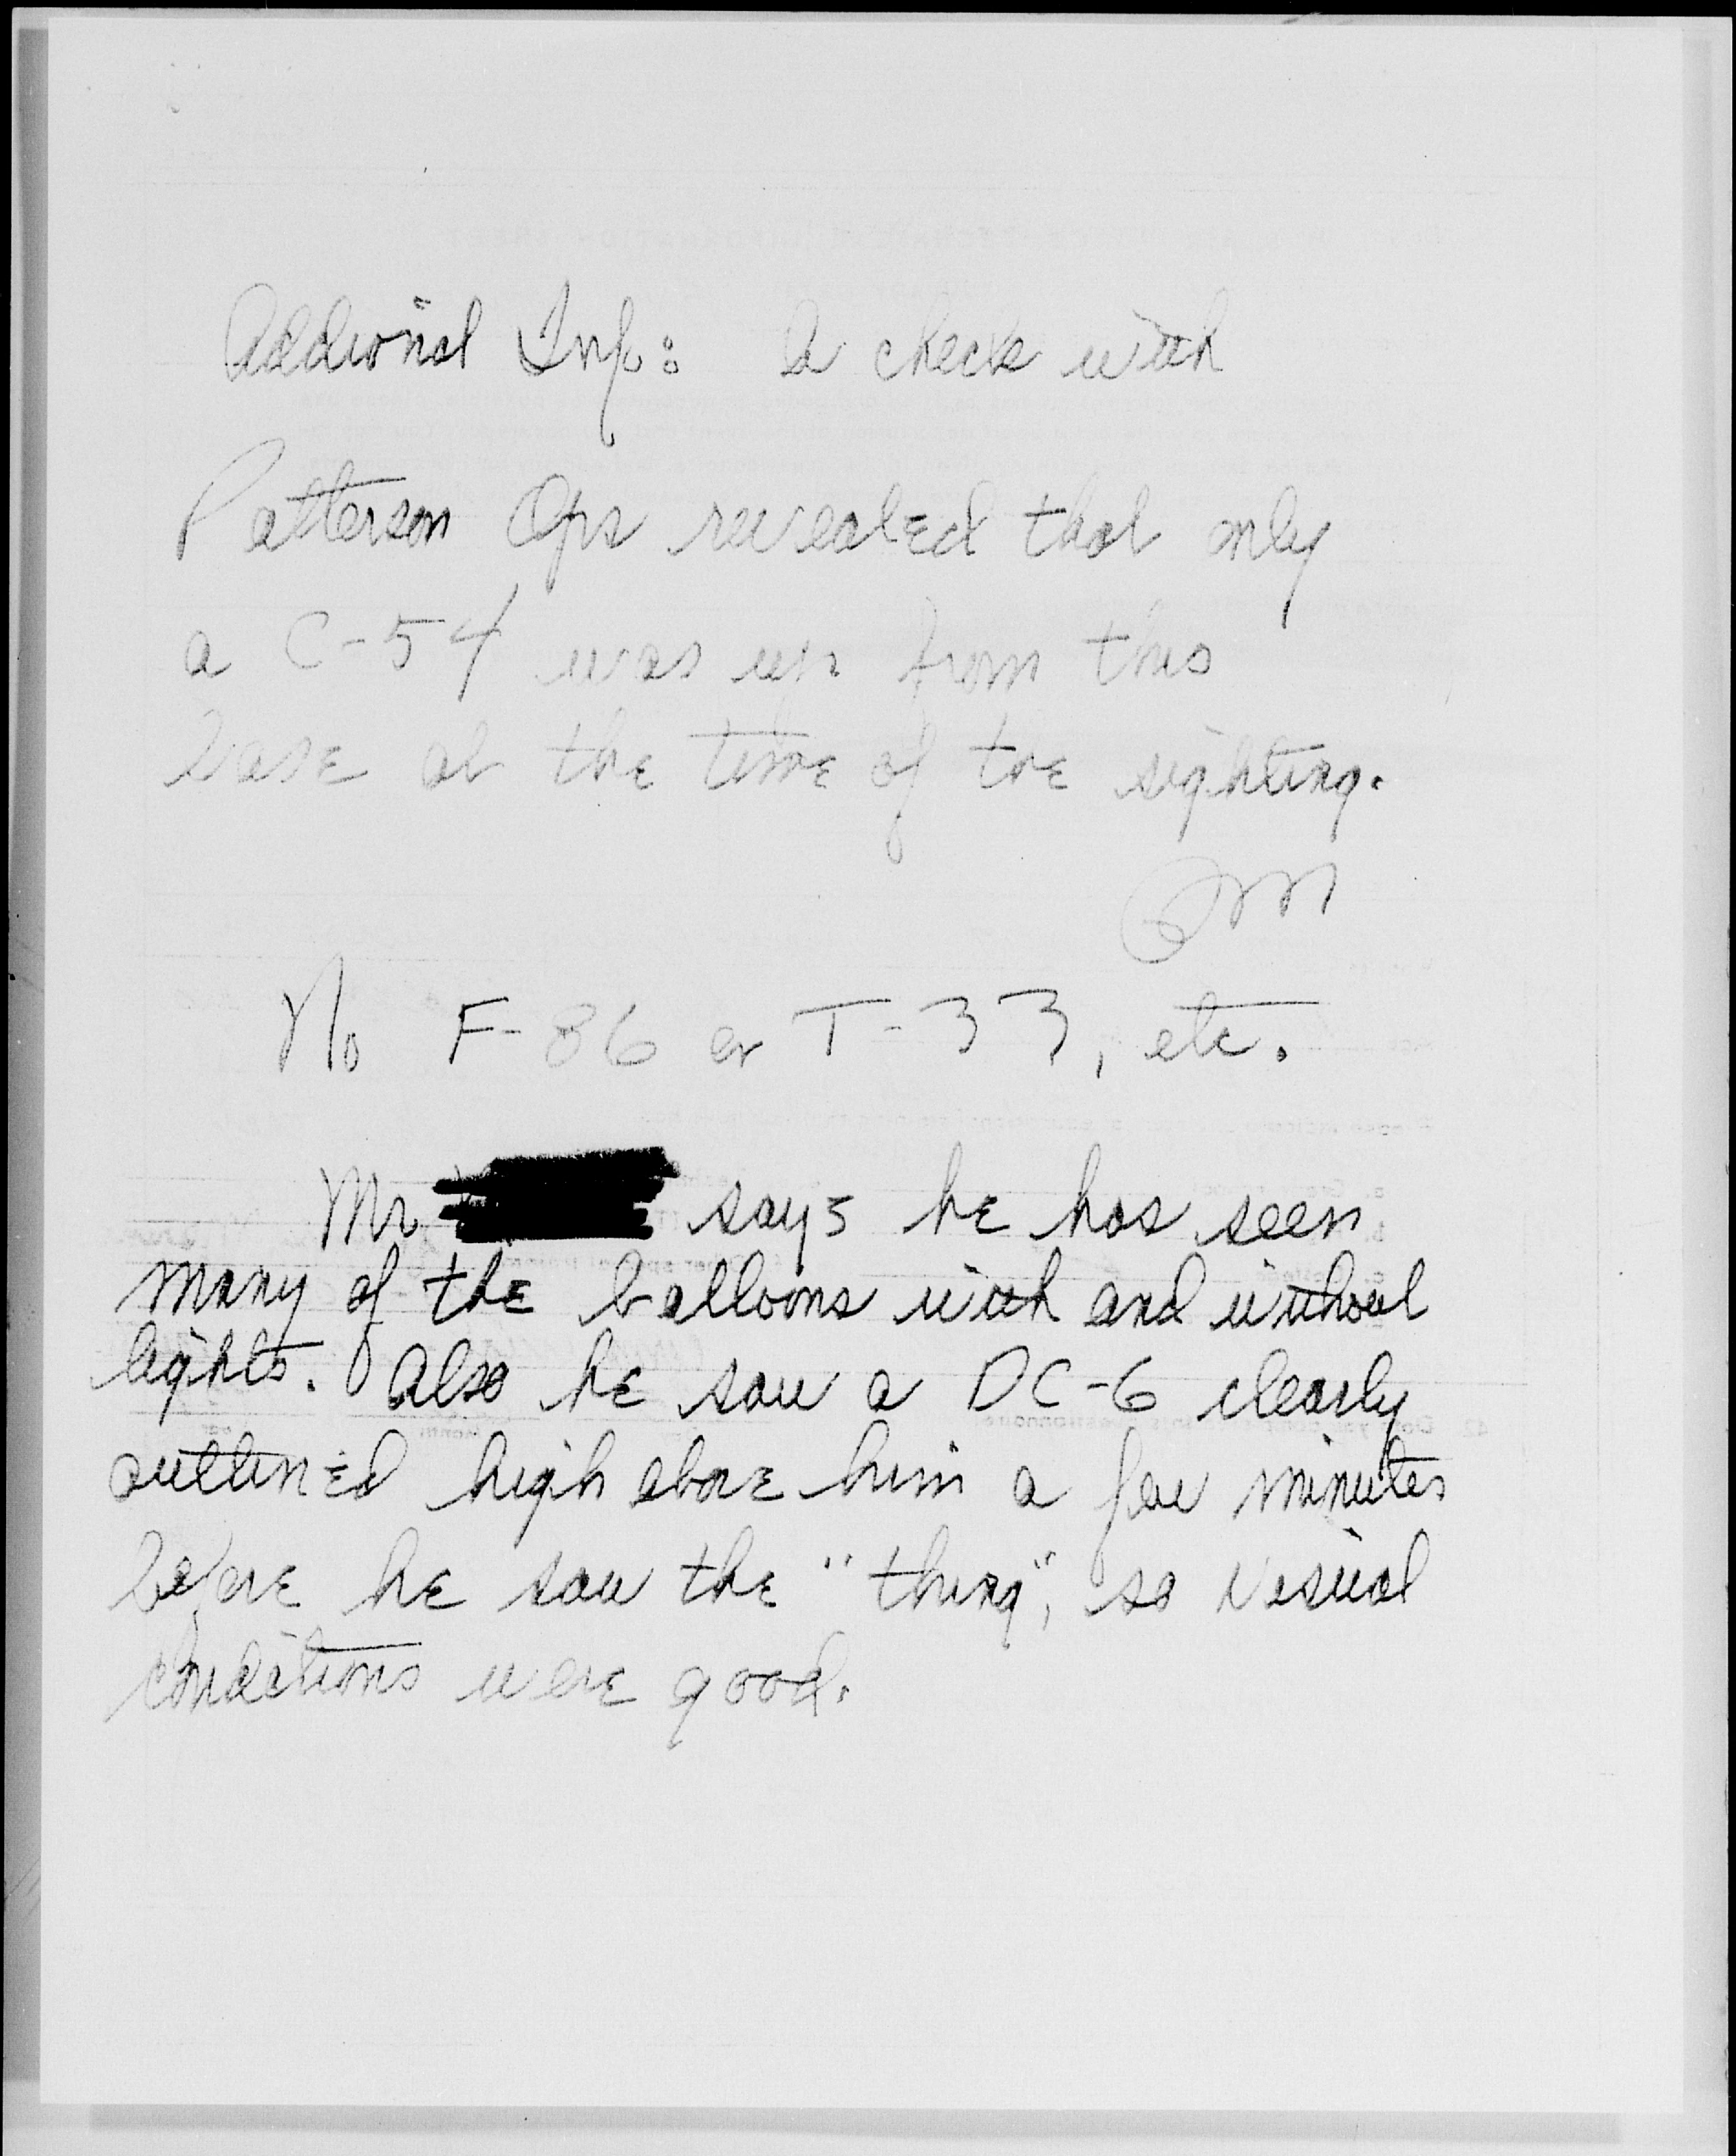 Addional Inf: A check with
Patterson Ops revealed that only
a C-54 was up from this
base at the time of the sighting.
No F-86 or T-33, etc.
Mr says he has seen
many of the balloons with and without
lights. Also he saw a DC-6 clearly
outlined high above him a few minutes
before he saw the "thing", so visual
conditions were good.